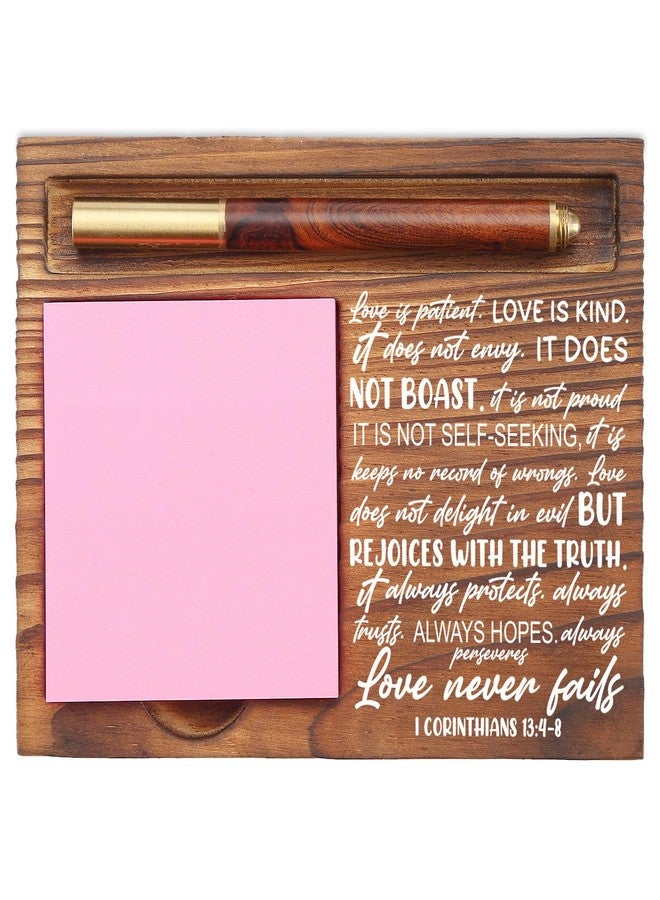 Love is patient. LOVE IS KIND.
it does not envy. IT DOES
NOT BOAST. it is not proud
IT IS NOT SELF-SEEKING, it is
keeps no record of wrongs. Love
does not delight in evil BUT
REJOICES WITH THE TRUTH.
it always protects. always
trusts. ALWAYS HOPES. always
perseveres
Love never fails
1 CORINTHIANS 13:4-8